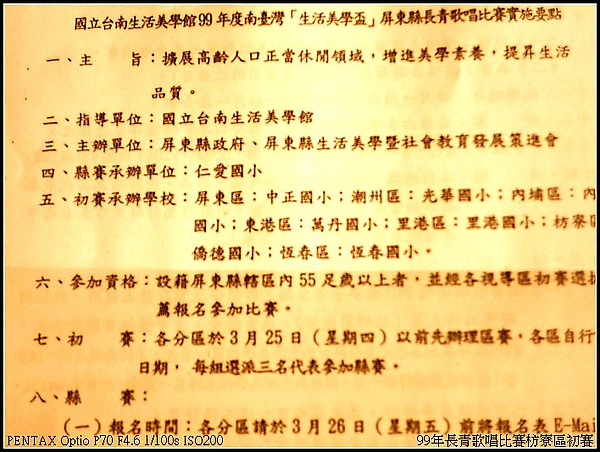 國立台南生活美學館99年度南臺灣「生活美學盃」屏東縣長青歌唱比賽實施要點
一、主　　旨：擴展高齡人口正當休閒領域，增進美學素養，提昇生活
品質。
二、指導單位：國立台南生活美學館
三、主辦單位：屏東縣政府、屏東縣生活美學暨社會教育發展策進會
四、縣賽承辦單位：仁愛國小
五、初賽承辦學校：屏東區：中正國小；潮州區：光華國小；內埔區：內
國小；東港區：萬丹國小；里港區：里港國小；枋寮區
僑德國小；恆春區：恆春國小。
六、參加資格：設籍屏東縣轄區內55足歲以上者，並經各視導區初賽選拔
薦報名參加比賽。
七、初　　賽：各分區於3月25日（星期四）以前先辦理區賽，各區自行
日期，每組選派三名代表參加縣賽。
八、縣　　賽：
（一）報名時間：各分區請於3月26日（星期五）前將報名表E-Mai
PENTAX Optio P70 F4.6 1/100s ISO200
99年長青歌唱比賽枋寮區初賽